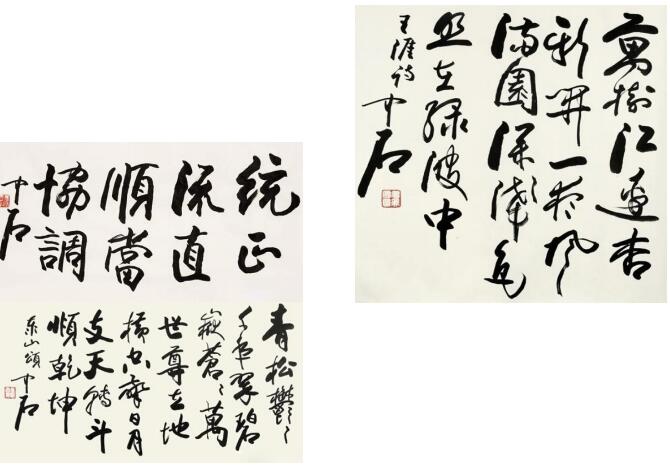 統正
流直
順當
協調
中石
青松鬱々
翠々碧
巖蒼々萬
世尊立地
橫空齊日月
支天轉斗
順乾坤
泰山頌 中石
萬樹江邊杏
新開一夜風
滿園深淺色
照在綠波中
王涯詩
中石